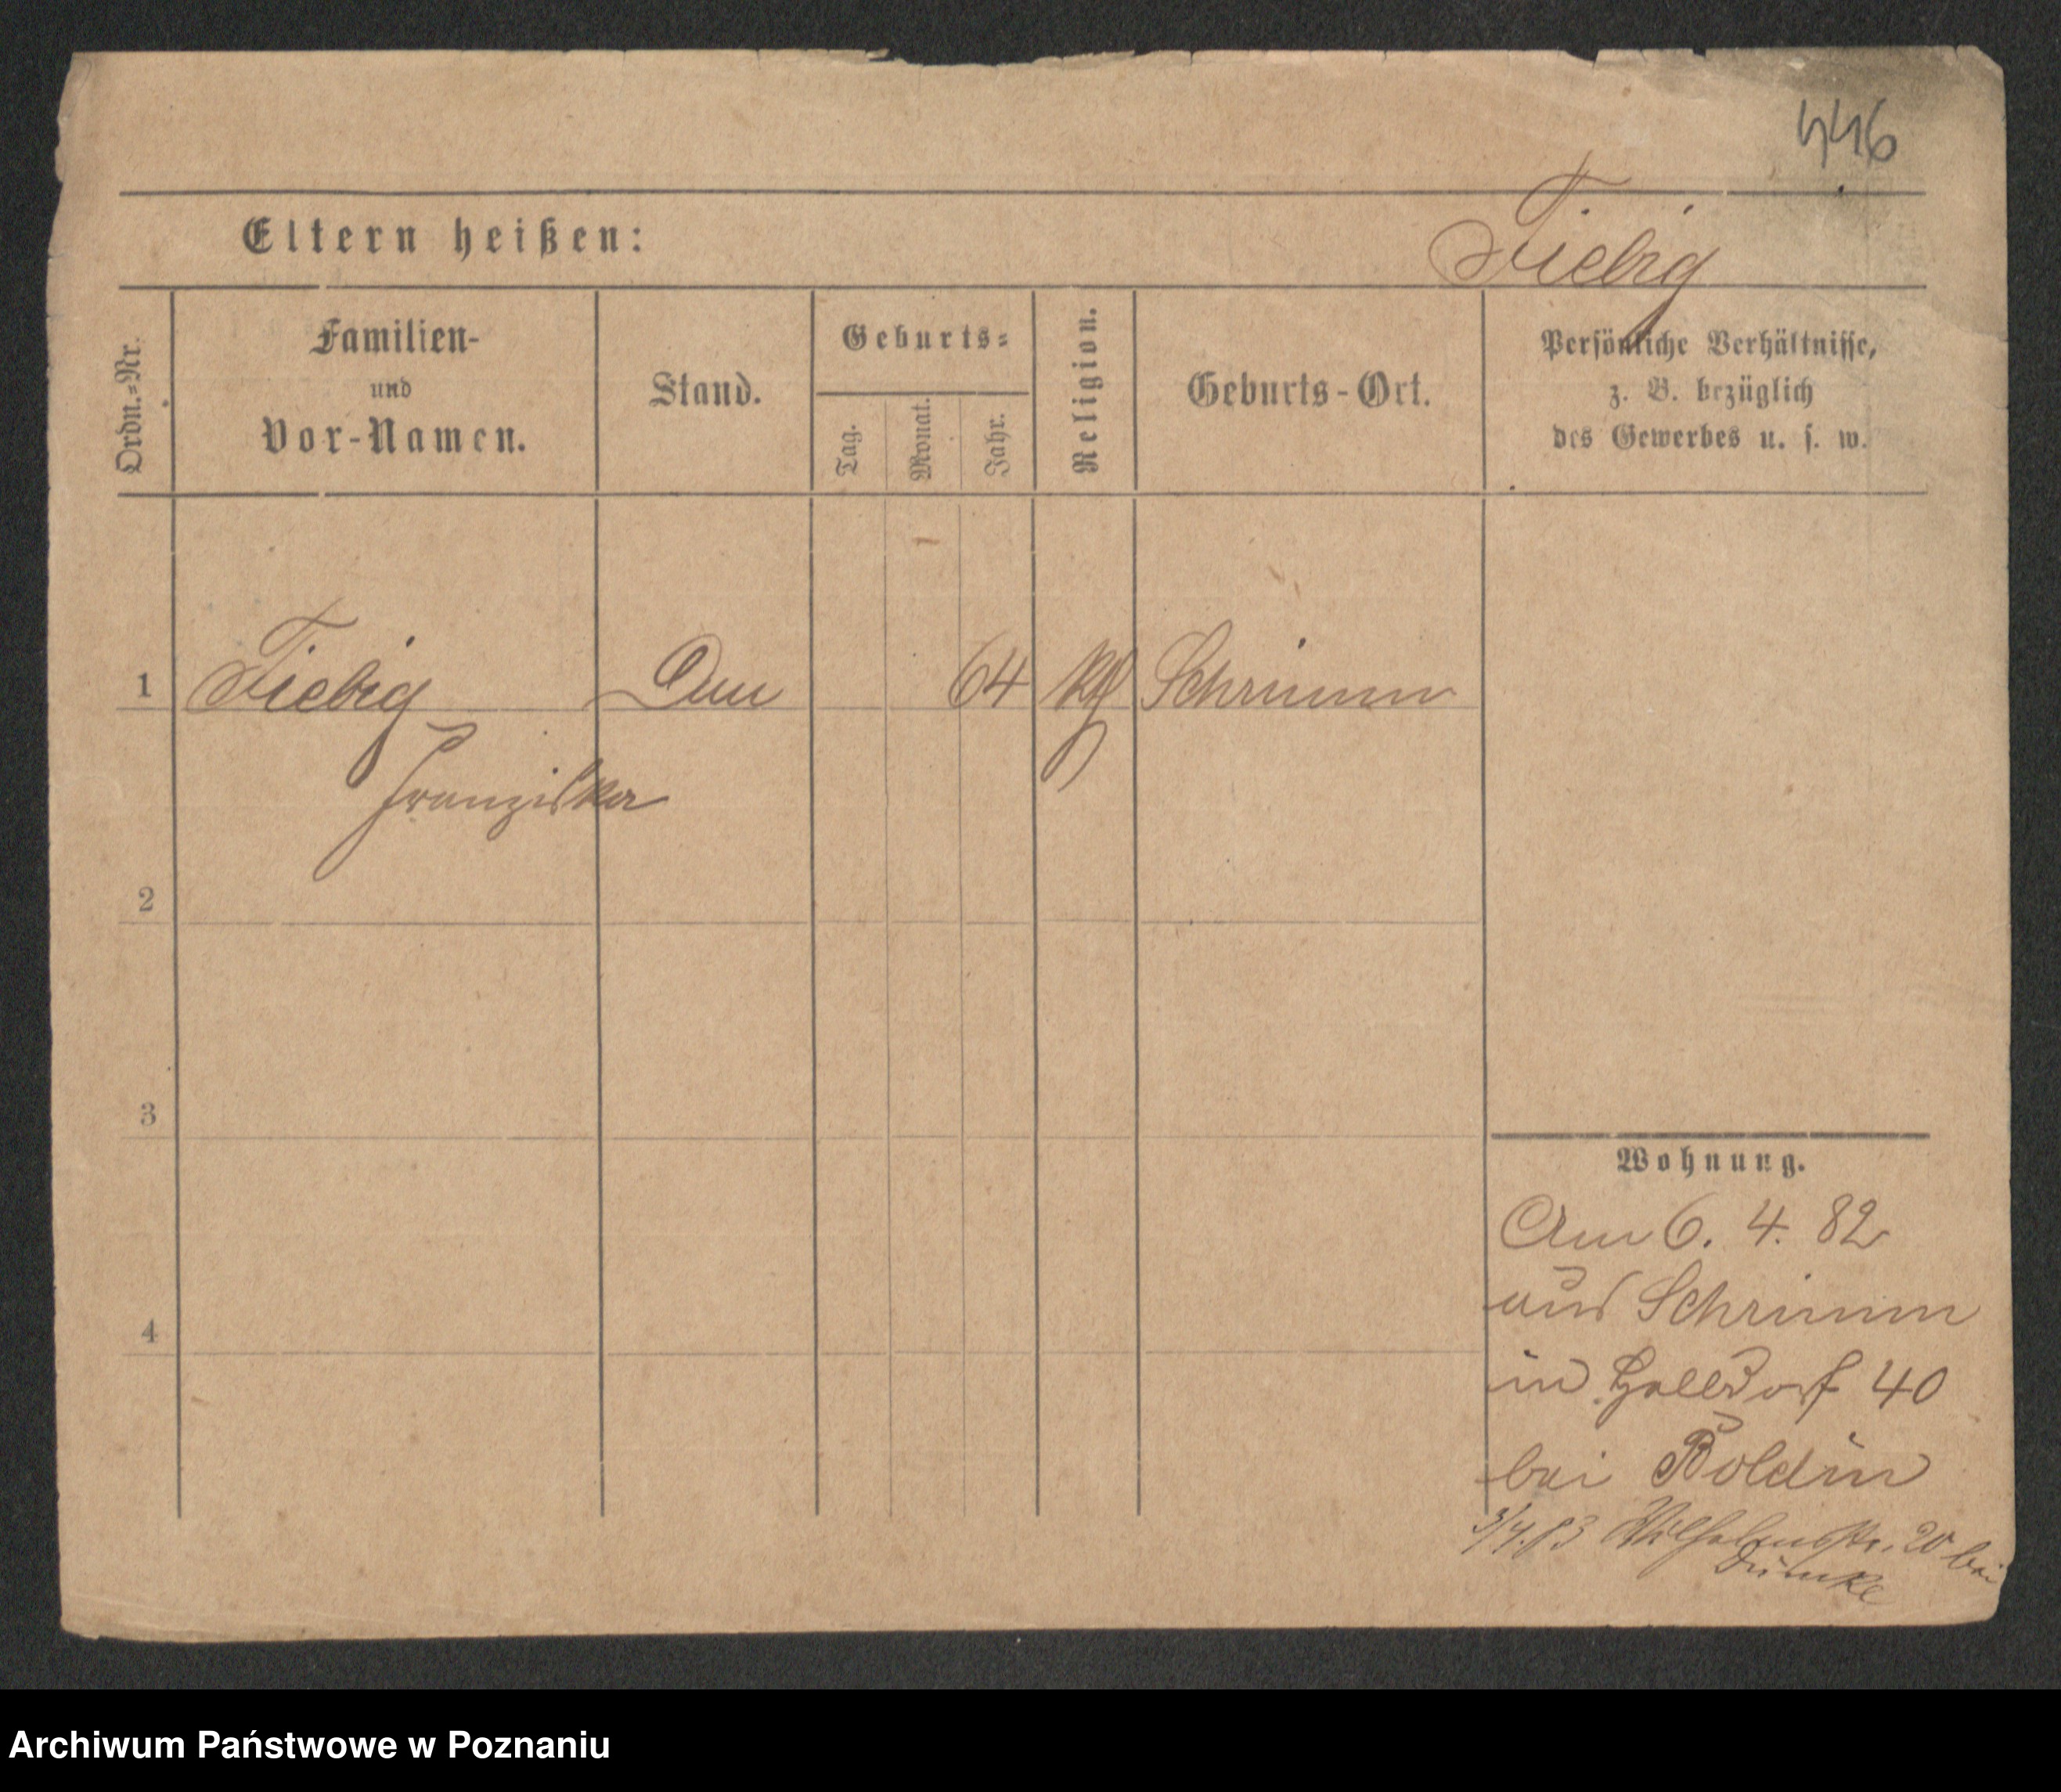 446
Eltern heißen:
Fiebig
Ordn.-Nr.
Familien-
und
Vor-Namen.
Stand.
Geburts-
Tag.
Monat.
Jahr.
Religion.
Geburts-Ort.
Persönliche Verhältnisse,
z. B. bezüglich
des Gewerbes u. s. w.
1 Fiebig 64 Schrimm
Franziska
2
3
4
Wohnung.
Am 6. 4. 82
aus Schrimm
in 40
bei Boldin
3/4.83 Wilhelmstr. 20 bei
Dümke
Archiwum Państwowe w Poznaniu